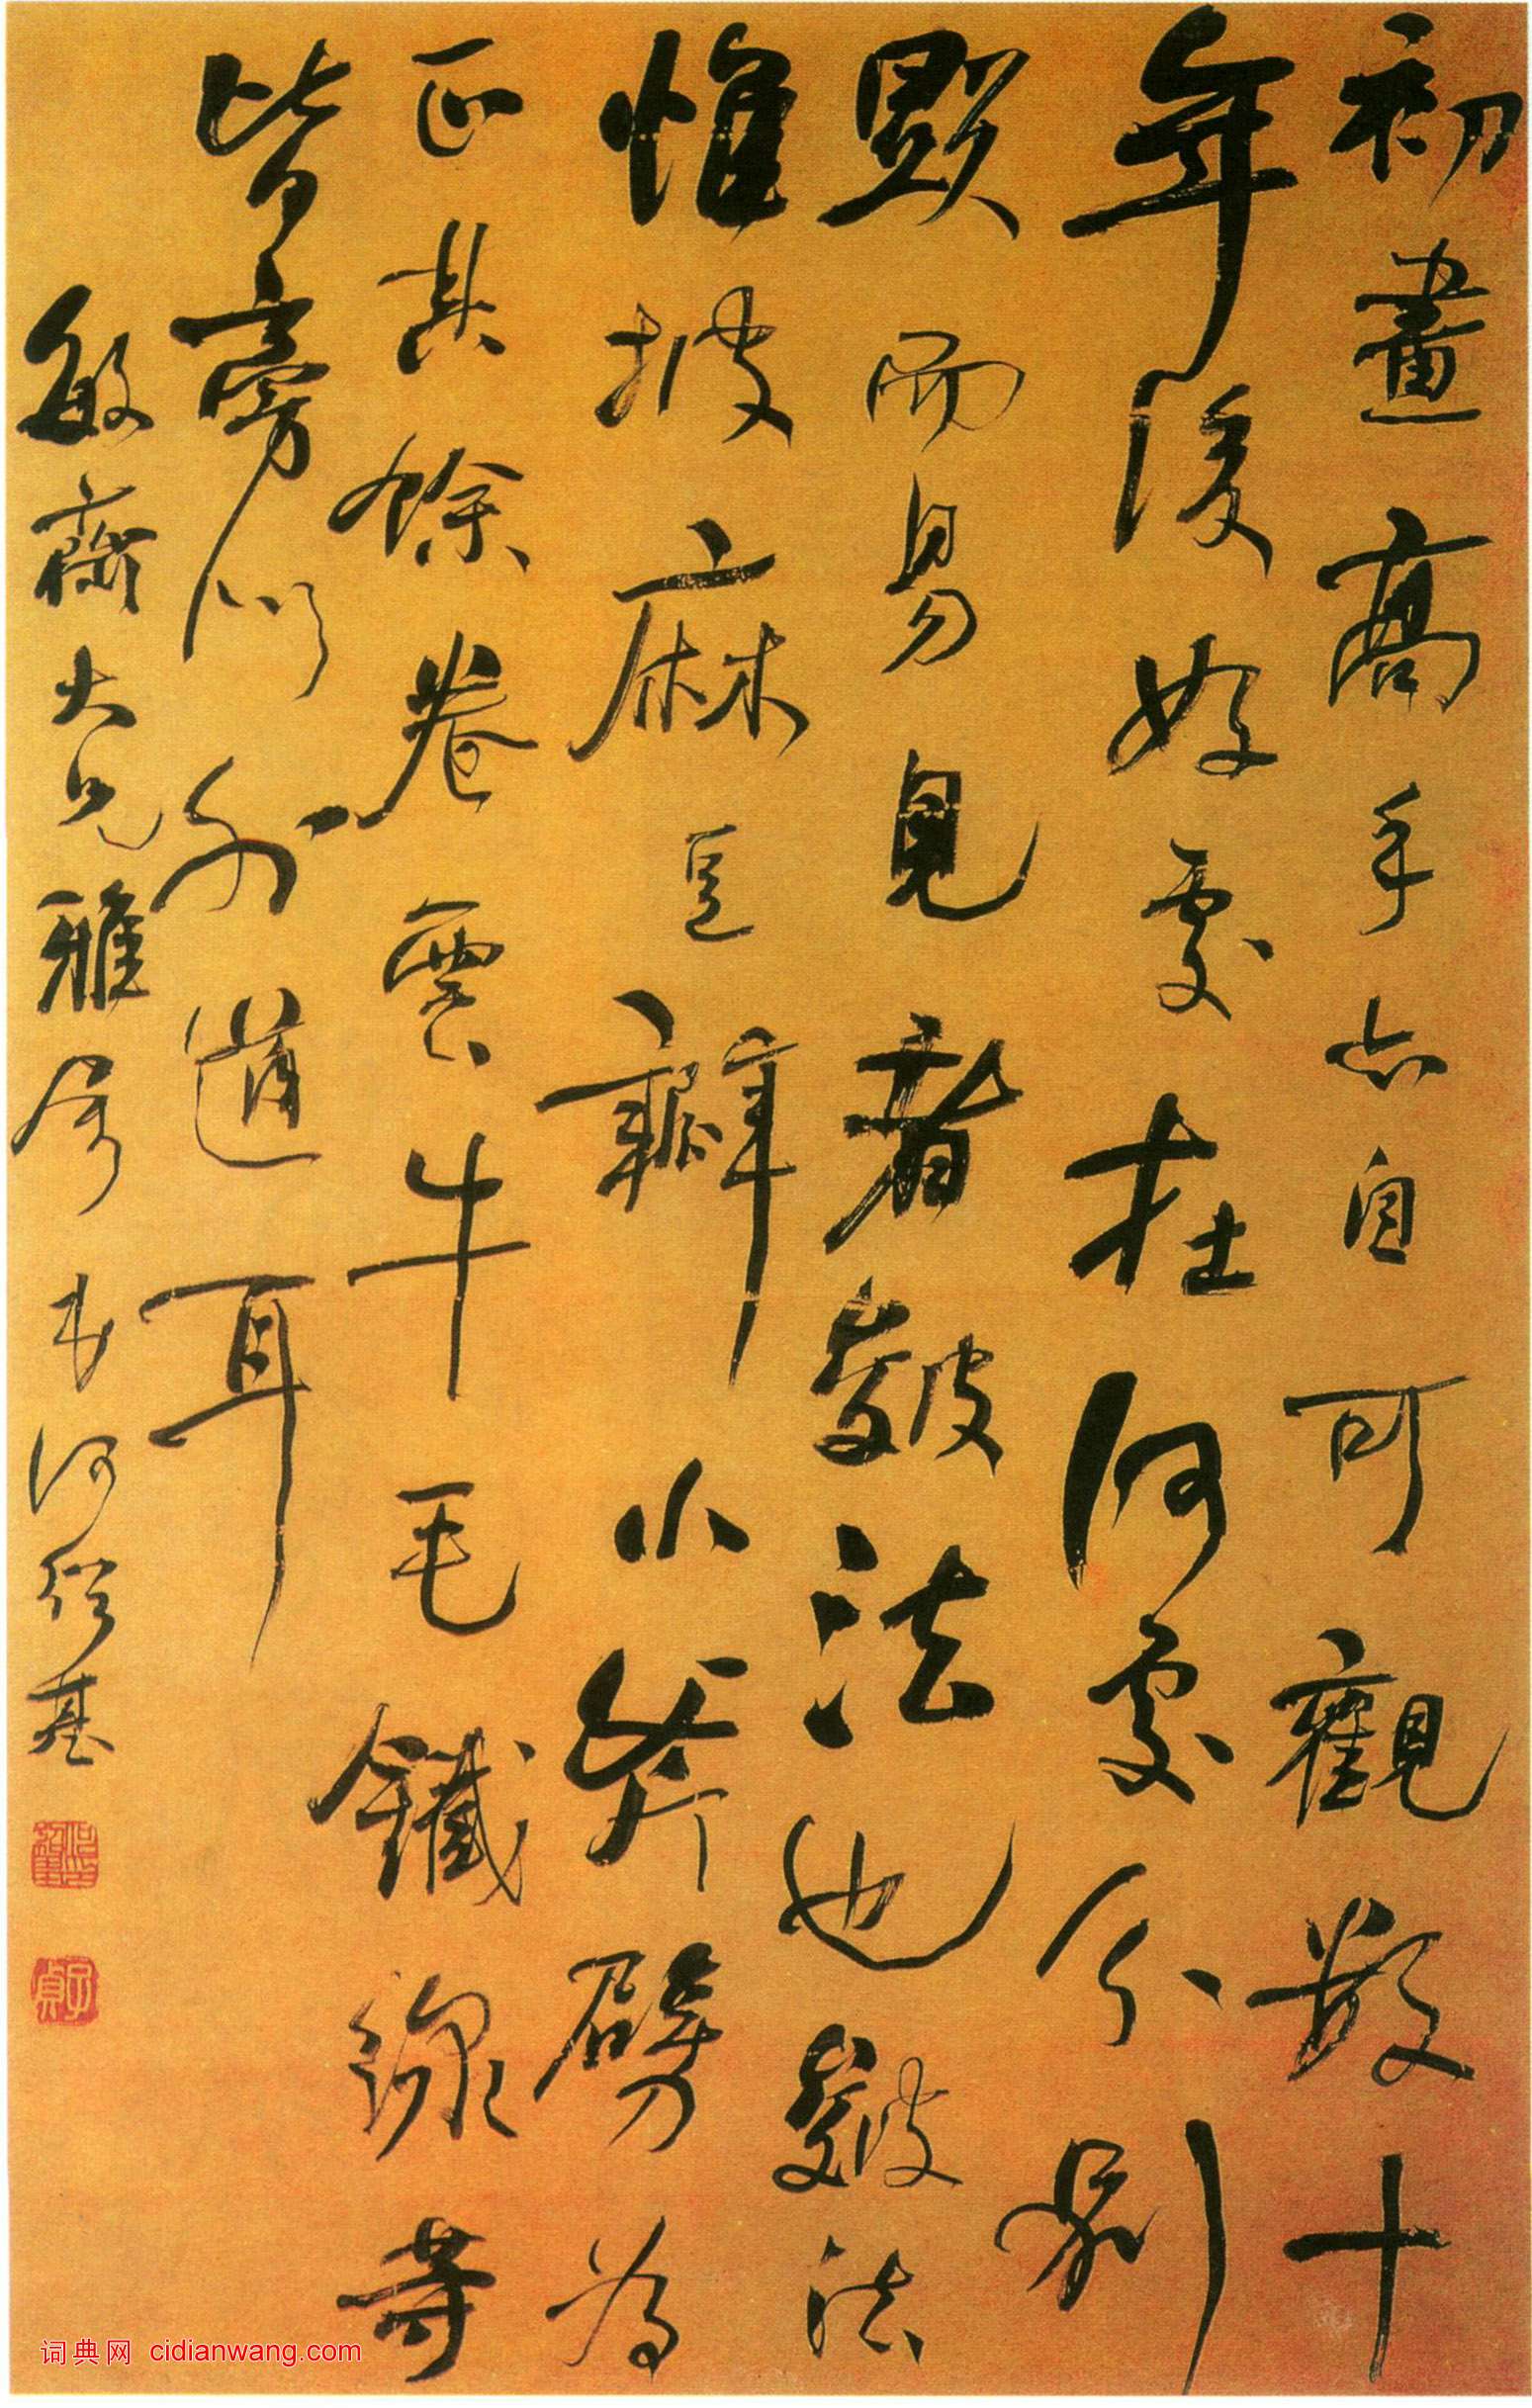 初畫高手亦自可觀數十
年後好處在何處分別
顯而易見者皴法也皴法
惟披麻豆瓣小斧劈為
正其餘卷雲牛毛鐵線等
皆旁門外道耳
敏齋大兄雅屬 子貞何紹基
词典网 cidianwang.com